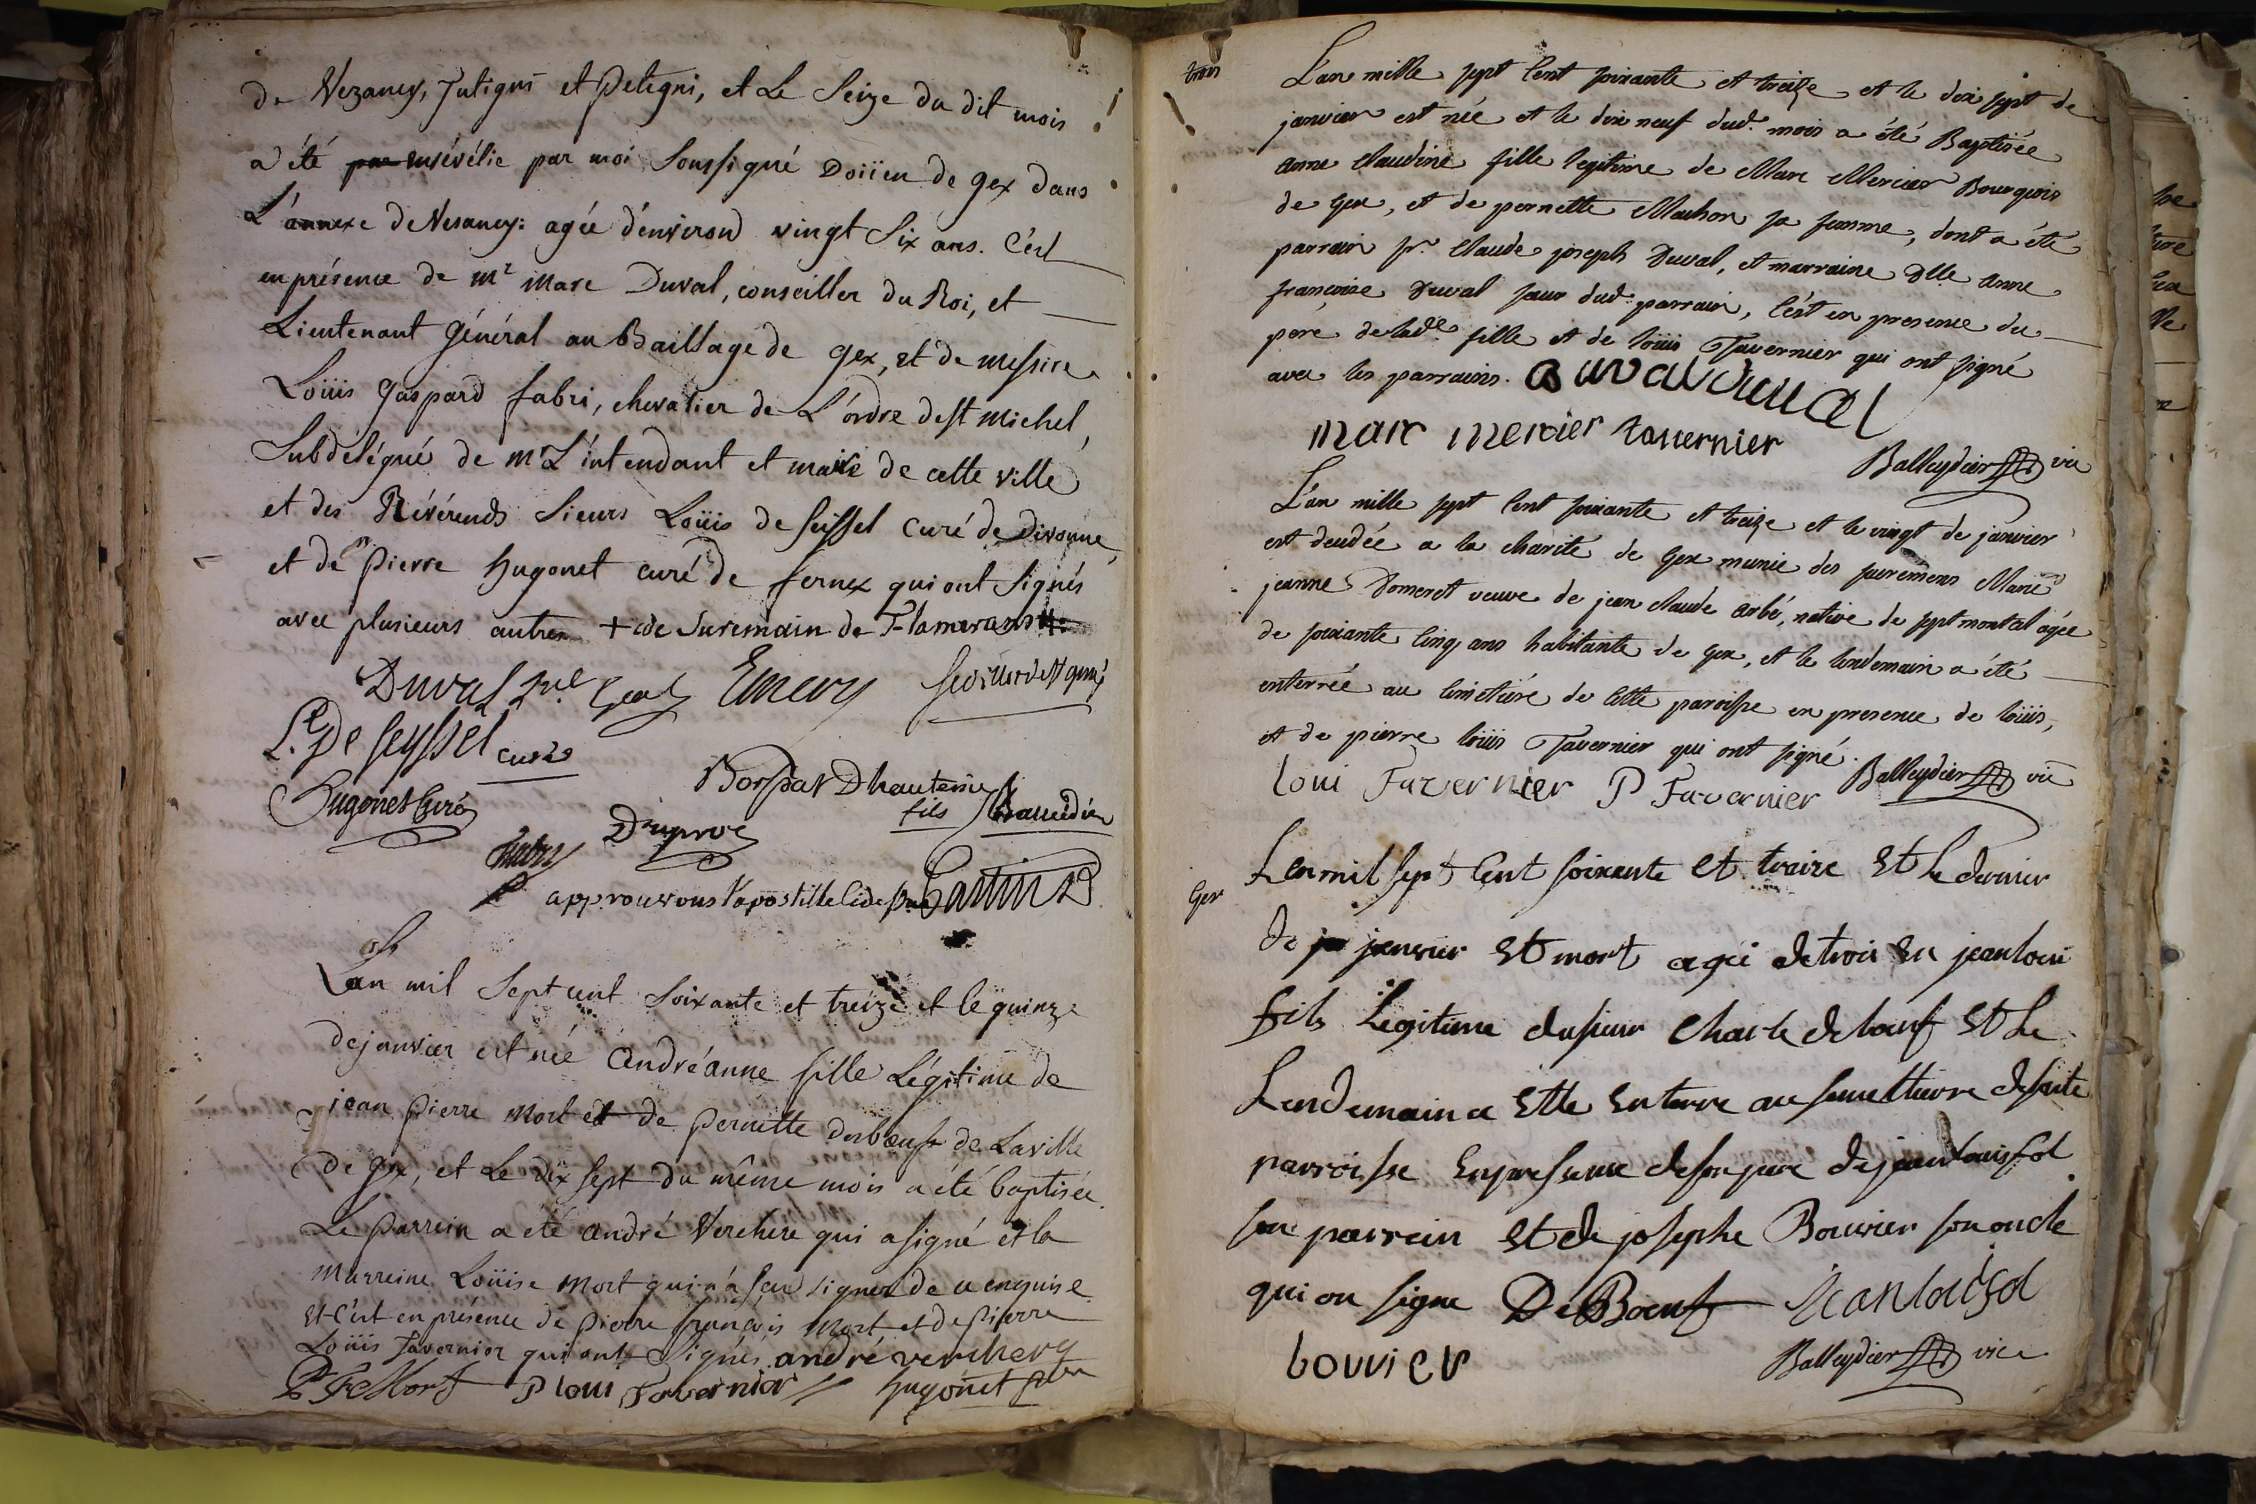 de Vezancy, Jutigni et Petegni, et Le Seize du dit mois
a été par ensévélie par moi Soussigné Doiien de gex dans
L'annexe de Vesancy: agée d'environ vingt Six ans. C'est
en présence de mr marc Duval, conseiller du Roi, et
Lieutenant Général au Baillage de gex, et de messire
Loüis gaspard fabri, chevalier de L'ordre de st michel,
Subdélégué de mr L'intendant et maire de cette ville
et des Révérends Sieurs Loüis de seissel curé de Divonne,
et de pierre hugonet curé de fernex qui ont signés
avec plusieurs autres + de Suremain de Flamerans
Duval Emery
L. De seyssel curé
hugonet Curé
fils
Duproz
fabry
approuvons l'apostille
Lan mil Sept cent Soixante et treize et le quinze
de janvier est née andréanne fille Légitime de
jean pierre Mort et de pernette desbœuf de La ville
de gex, et Le dix sept du même mois a été baptisée.
Le parrein a été andré Verchere qui a signé et la
marreine Loüise mort qui n'a sçu signer de ce enquise
et c'est en présence de pierre françois mort et de pierre
Loüis Tavernier qui ont Signés. andré verchere
P Fs Mort P loui Tavernier hugonet
trois
L'an mille sept Cent soixante et treize et le dix sept de
janvier est née et le dix neuf dud. mois a été Baptisée
anne claudine fille legitime de Marc Mercier Bourgeois
de gex, et de pernette Machon sa femme, dont a été
parrain sr. Claude joseph Duval, et marraine Dlle anne
françoise Duval sœur dud. parrain, C'est en presence du
pere de lade. fille et de loüis Tavernier qui ont signé
avec les parrains. Duval Duval
marc mercier tavernier
Balleydier vic
L'an mille sept Cent soixante et treize et le vingt de janvier
est decedée a la charité de Gex munie des sacremens Marie
jeanne Domeret veuve de jean claude arbé, native de septmontal agée
de soixante Cinq ans habitante de gex, et le lendemain a été
enterrée au Cimetiére de Cette paroisse en presence de loüis,
et de pierre loüis Tavernier qui ont signé.
loui Tavernier P Tavernier
Balleydier vic
Gex
Lan mil sept Cent soixente et traize et Le dernier
de ja janvier et mort agée de trois en jean loui
fils Legitime du sieur Charle deboeuf et Le
Lendemain a ette enterre au semettierre de saite
parroisse en presence de son pere de jean louis fol
son parrein et de josephe Bouvier son oncle
qui on signe DeBoeuf jean loui fol
bouvier
Balleydier vic